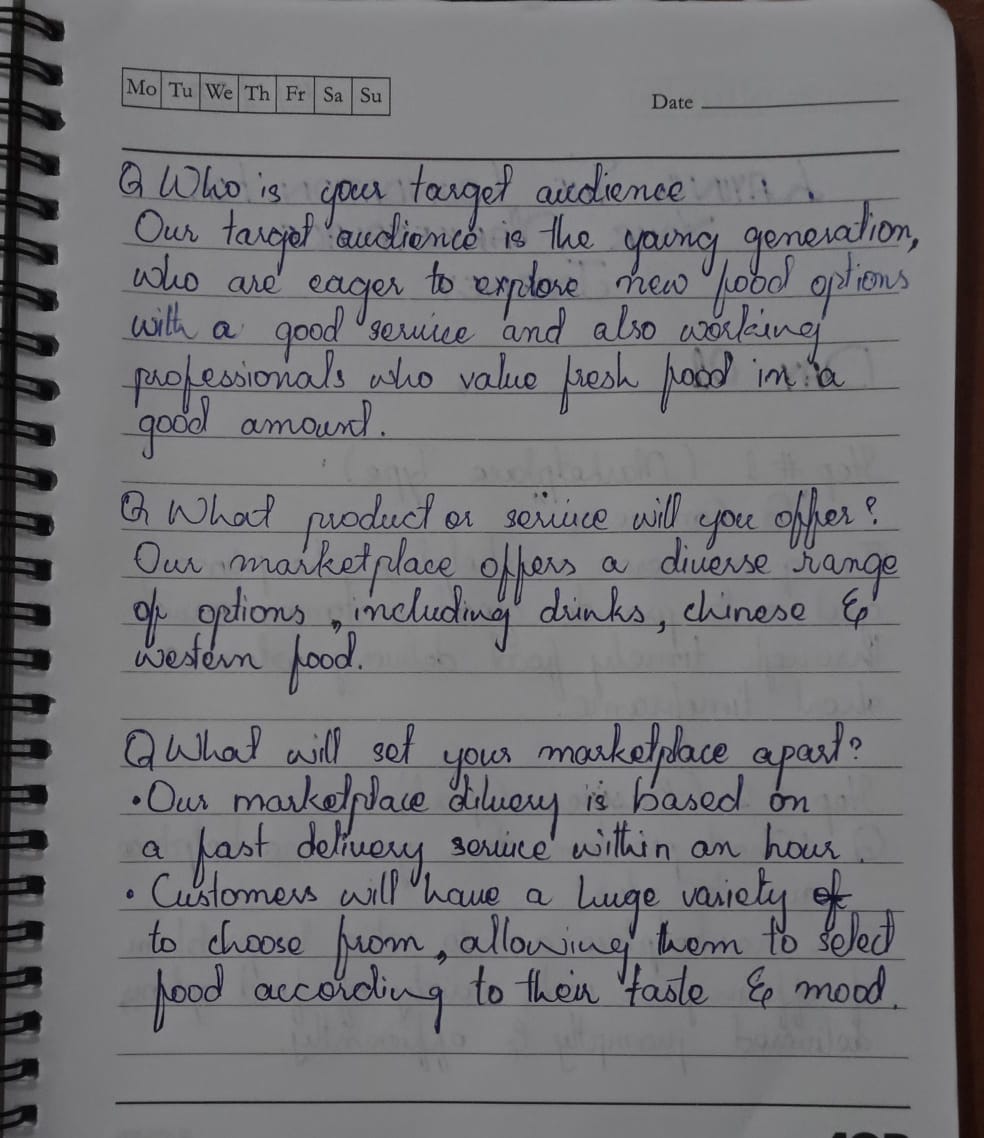 Mo Tu We Th Fr Sa Su
Date
Q Who is your target audience
Our target audience is the young generation,
who are eager to explore new food options
with a good service and also working
professionals who value fresh food in a
good amount.
Q What product or service will you offer?
Our marketplace offers a diverse range
of options, including drinks, chinese &
western food.
Q What will set your marketplace apart?
• Our marketplace dilvery is based on
a fast delivery service within an hour.
• Customers will have a huge variety
to choose from, allowing them to select
food according to their taste & mood.